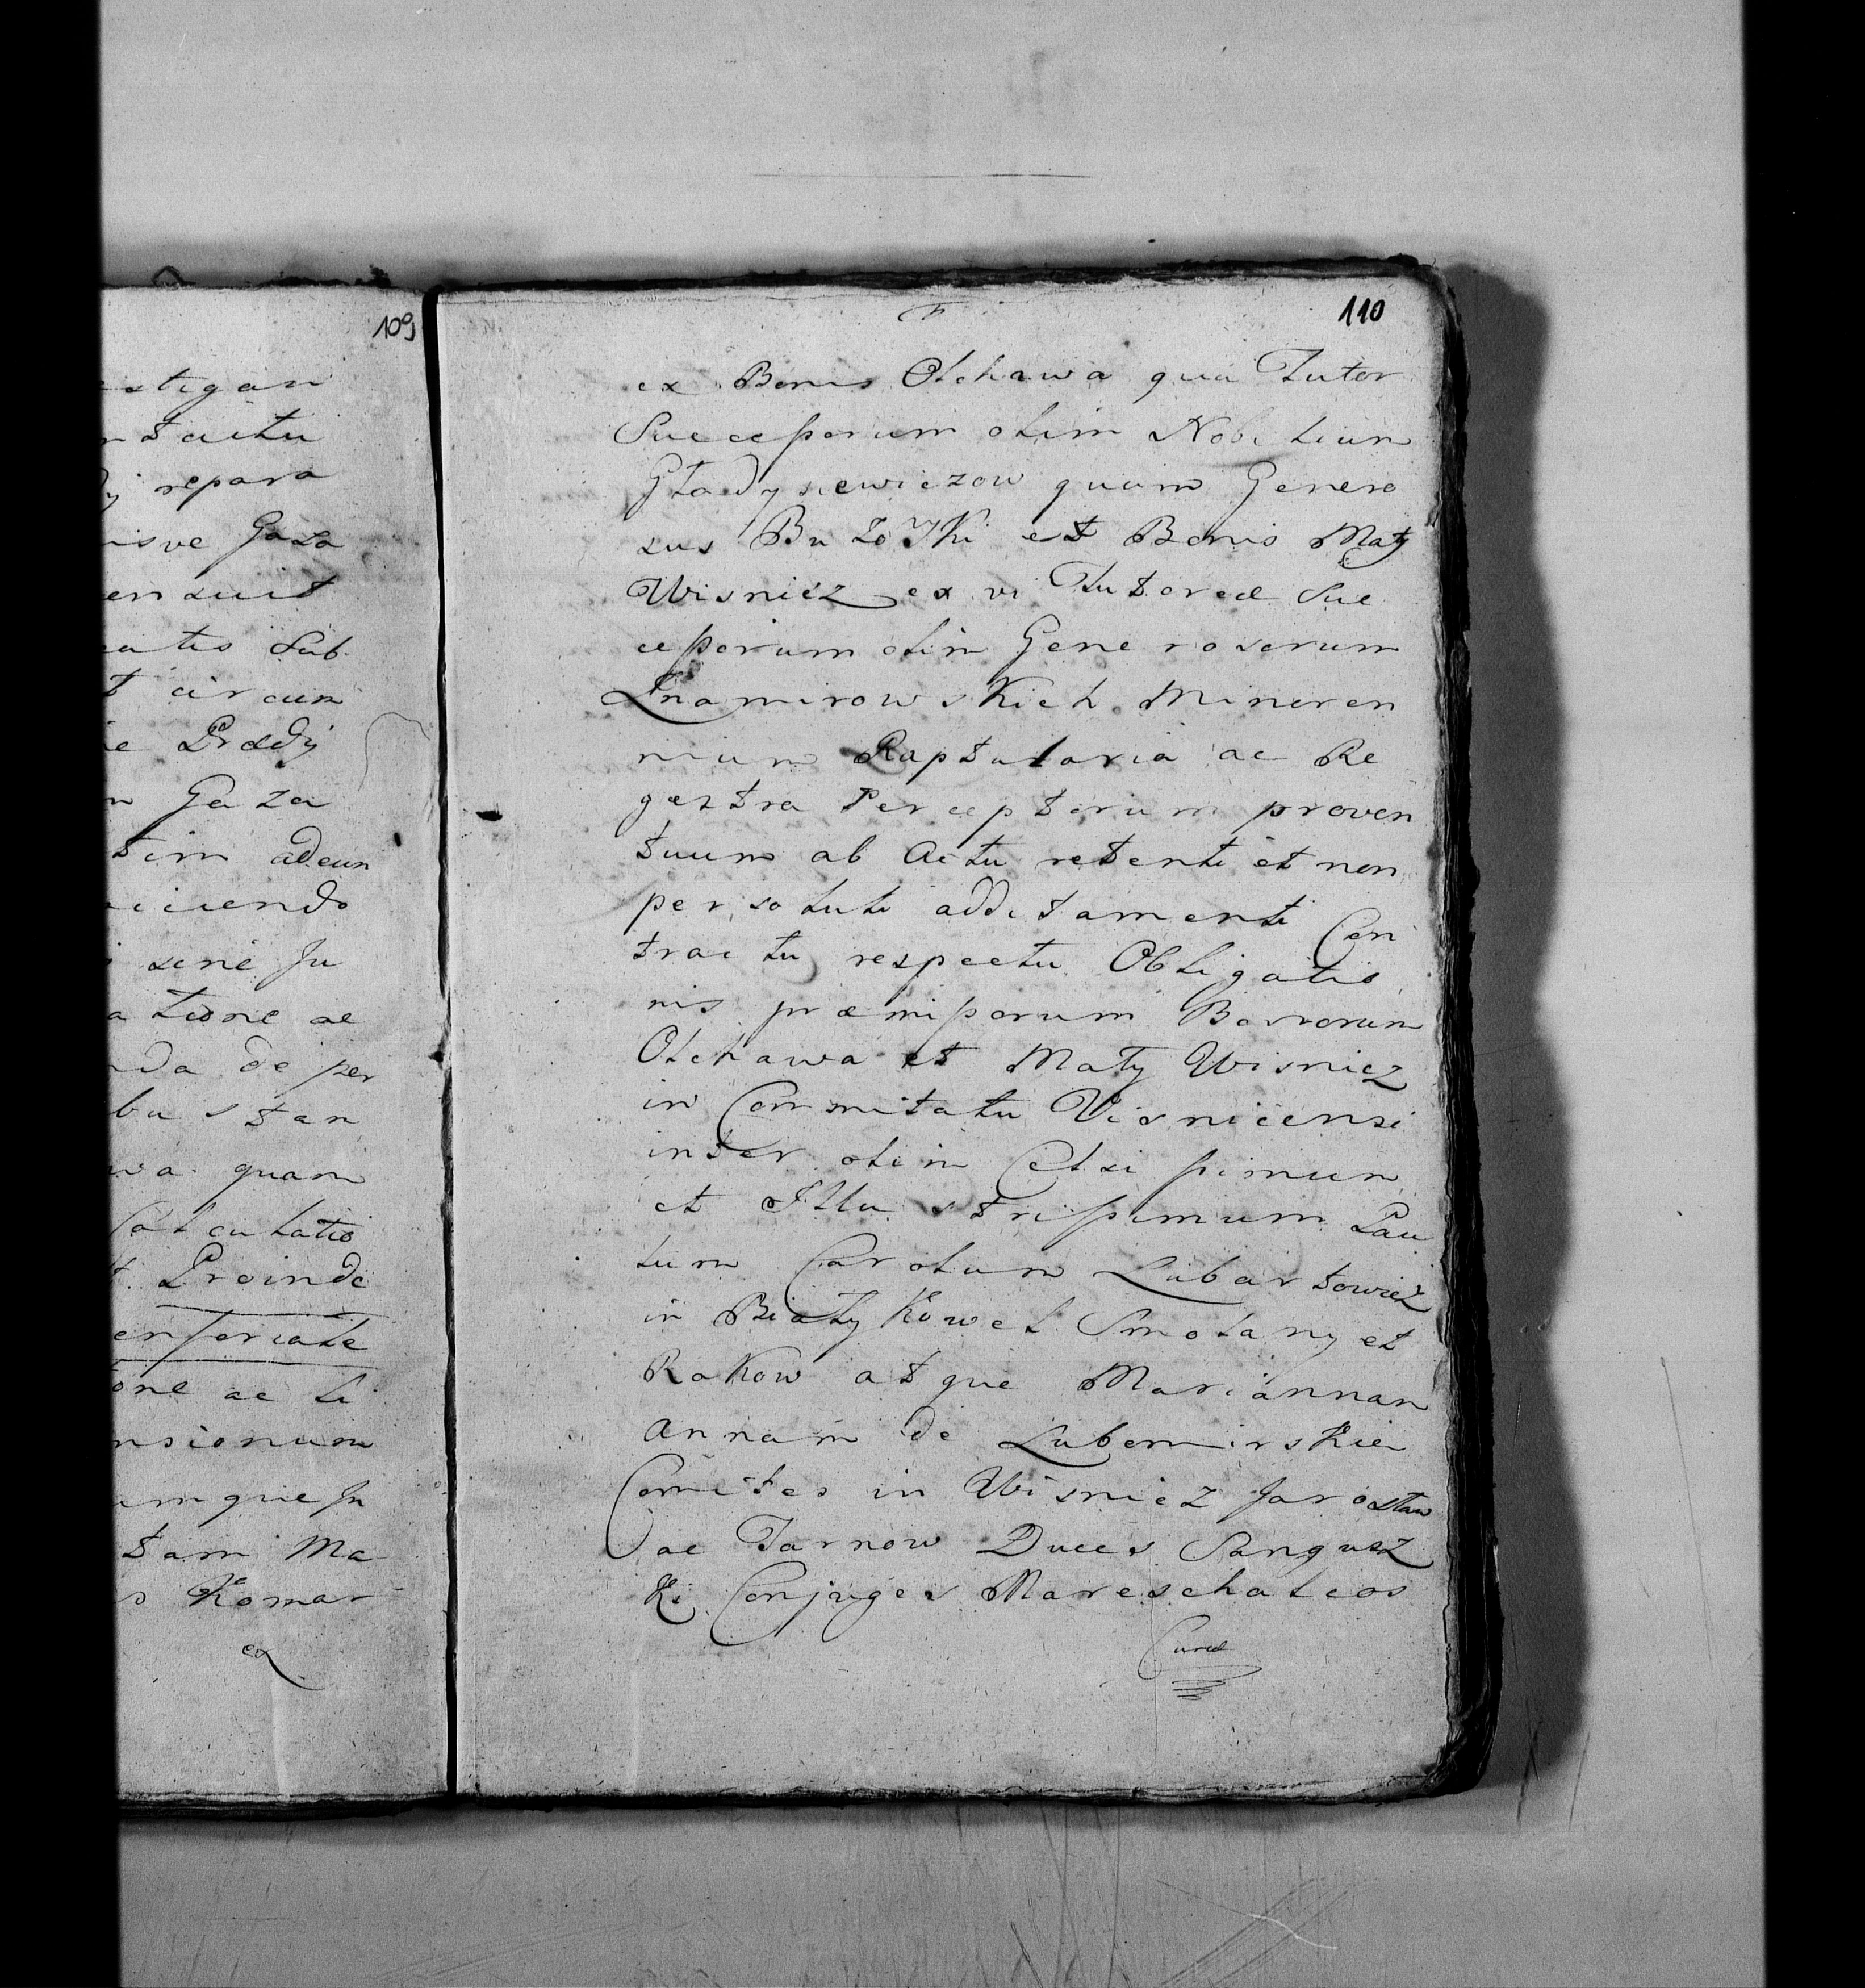 109
estigari
ntactu
repara
isve Gaza
ensuit
catis Sub
t circum
Praedij
Gaza
tim adeun
iciendo
sine Ju
atione ac
nda de per
bu stan
wa quam
Calculatio
Proinde
ensoriale
one ac li
nsionum
umque Ju
tam Ma
s Komar
ex
110
ex Bonis Olchawa qua Tutor
Successorum olim Nobilium
Gładysiewiczow quam Genero
sus et Bonis Mały
Wisnicz ex vi Tutorae Suc
cessorum olim Generosorum
Znamirowskich Minoren
nium Raptularia ac Re
gestra Perceptorum proven
tuum ab Actu retenti et non
persoluti additamenti Con
tractu respectu Obligatio
nis praemissorum Bonorum
Olchawa et Mały Wisnicz
in Commitatu Visnicensi
inter olim Celsissimum
et Illustrissimum Pau
lum Carolum Lubartowicz
in Biały Kowel Smolany et
Rakow atque Mariannam
Annam de Lubomirskie
Comites in Wisnicz Jarosław
ac Tarnow Duces Sangusz
ki Conjuges Mareschalcos
Curae